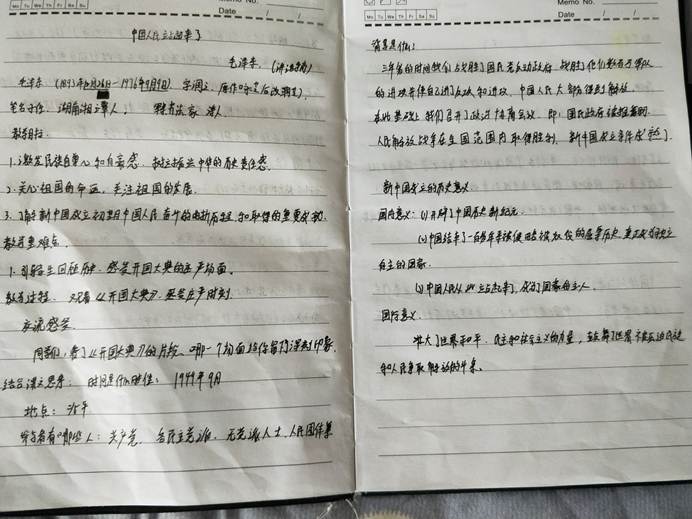 Memo No.
Mo Tu We Th Fr Sa Su
Date / /
中国人民站起来了
毛泽东 (讲话者)
毛泽东 (1893年12月26日—1976年9月9日) 字润之
笔名子任. 湖南湘潭人. 诗人
教学目标
1. 激发民族自尊心和自豪感. 树立振兴中华的历史责任感.
2. 关心祖国的命运, 关注祖国的发展.
3. 了解新中国成立初期中国人民奋斗的曲折历程, 和取得的重要成就.
教学重难点.
1. 引导学生回顾历史. 感受开国大典的庄严场面.
教学过程. 观看《开国大典》. 感受庄严时刻.
交流感受
同学们, 看了《开国大典》的片段. 哪一个场面给你留下深刻印象.
结合课文思考: 时间是什么时候: 1949年9月
地点: 北平
参与者有哪些人: 共产党. 各民主党派. 无党派人士. 人民团体等
Memo No.
Mo Tu We Th Fr Sa Su
Date / /
背景是什么:
三年多的时间我们战胜了国民党反动政府
的进攻并使自己进行反攻和进攻. 中国人民大部分得到解放
在此基础上我们召开了政治协商会议. 即: 国民政府被推翻.
人民解放战争在全国范围内取得胜利. 新中国成立条件成熟了.
新中国成立的历史意义
国内意义: (1) 开辟了中国历史新纪元.
(2) 中国结束了一百多年来被侵略被奴役的屈辱历史. 真正成为独立
自主的国家.
(3) 中国人民从此站起来了, 成为了国家的主人.
国际意义
壮大了世界和平. 民主和社会主义的力量, 鼓舞了世界被压迫民族
和人民争取解放的斗争.